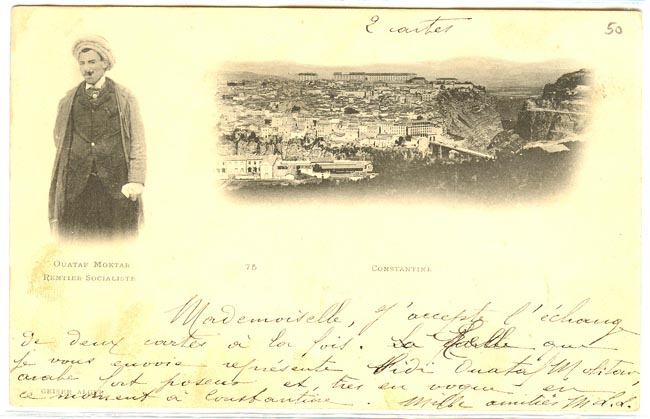 2 cartes
50
OUATAF MOKTAR
RENTIER SOCIALISTE
75
CONSTANTINE
Mademoiselle, J'accepte l'échange
de deux cartes à la fois. La que
je vous envoie représente Sidi Ouataf
arabe fort poseur et très en vogue en
GEISER ALGER
ce moment à Constantine. Mille amitiés M.L.L.